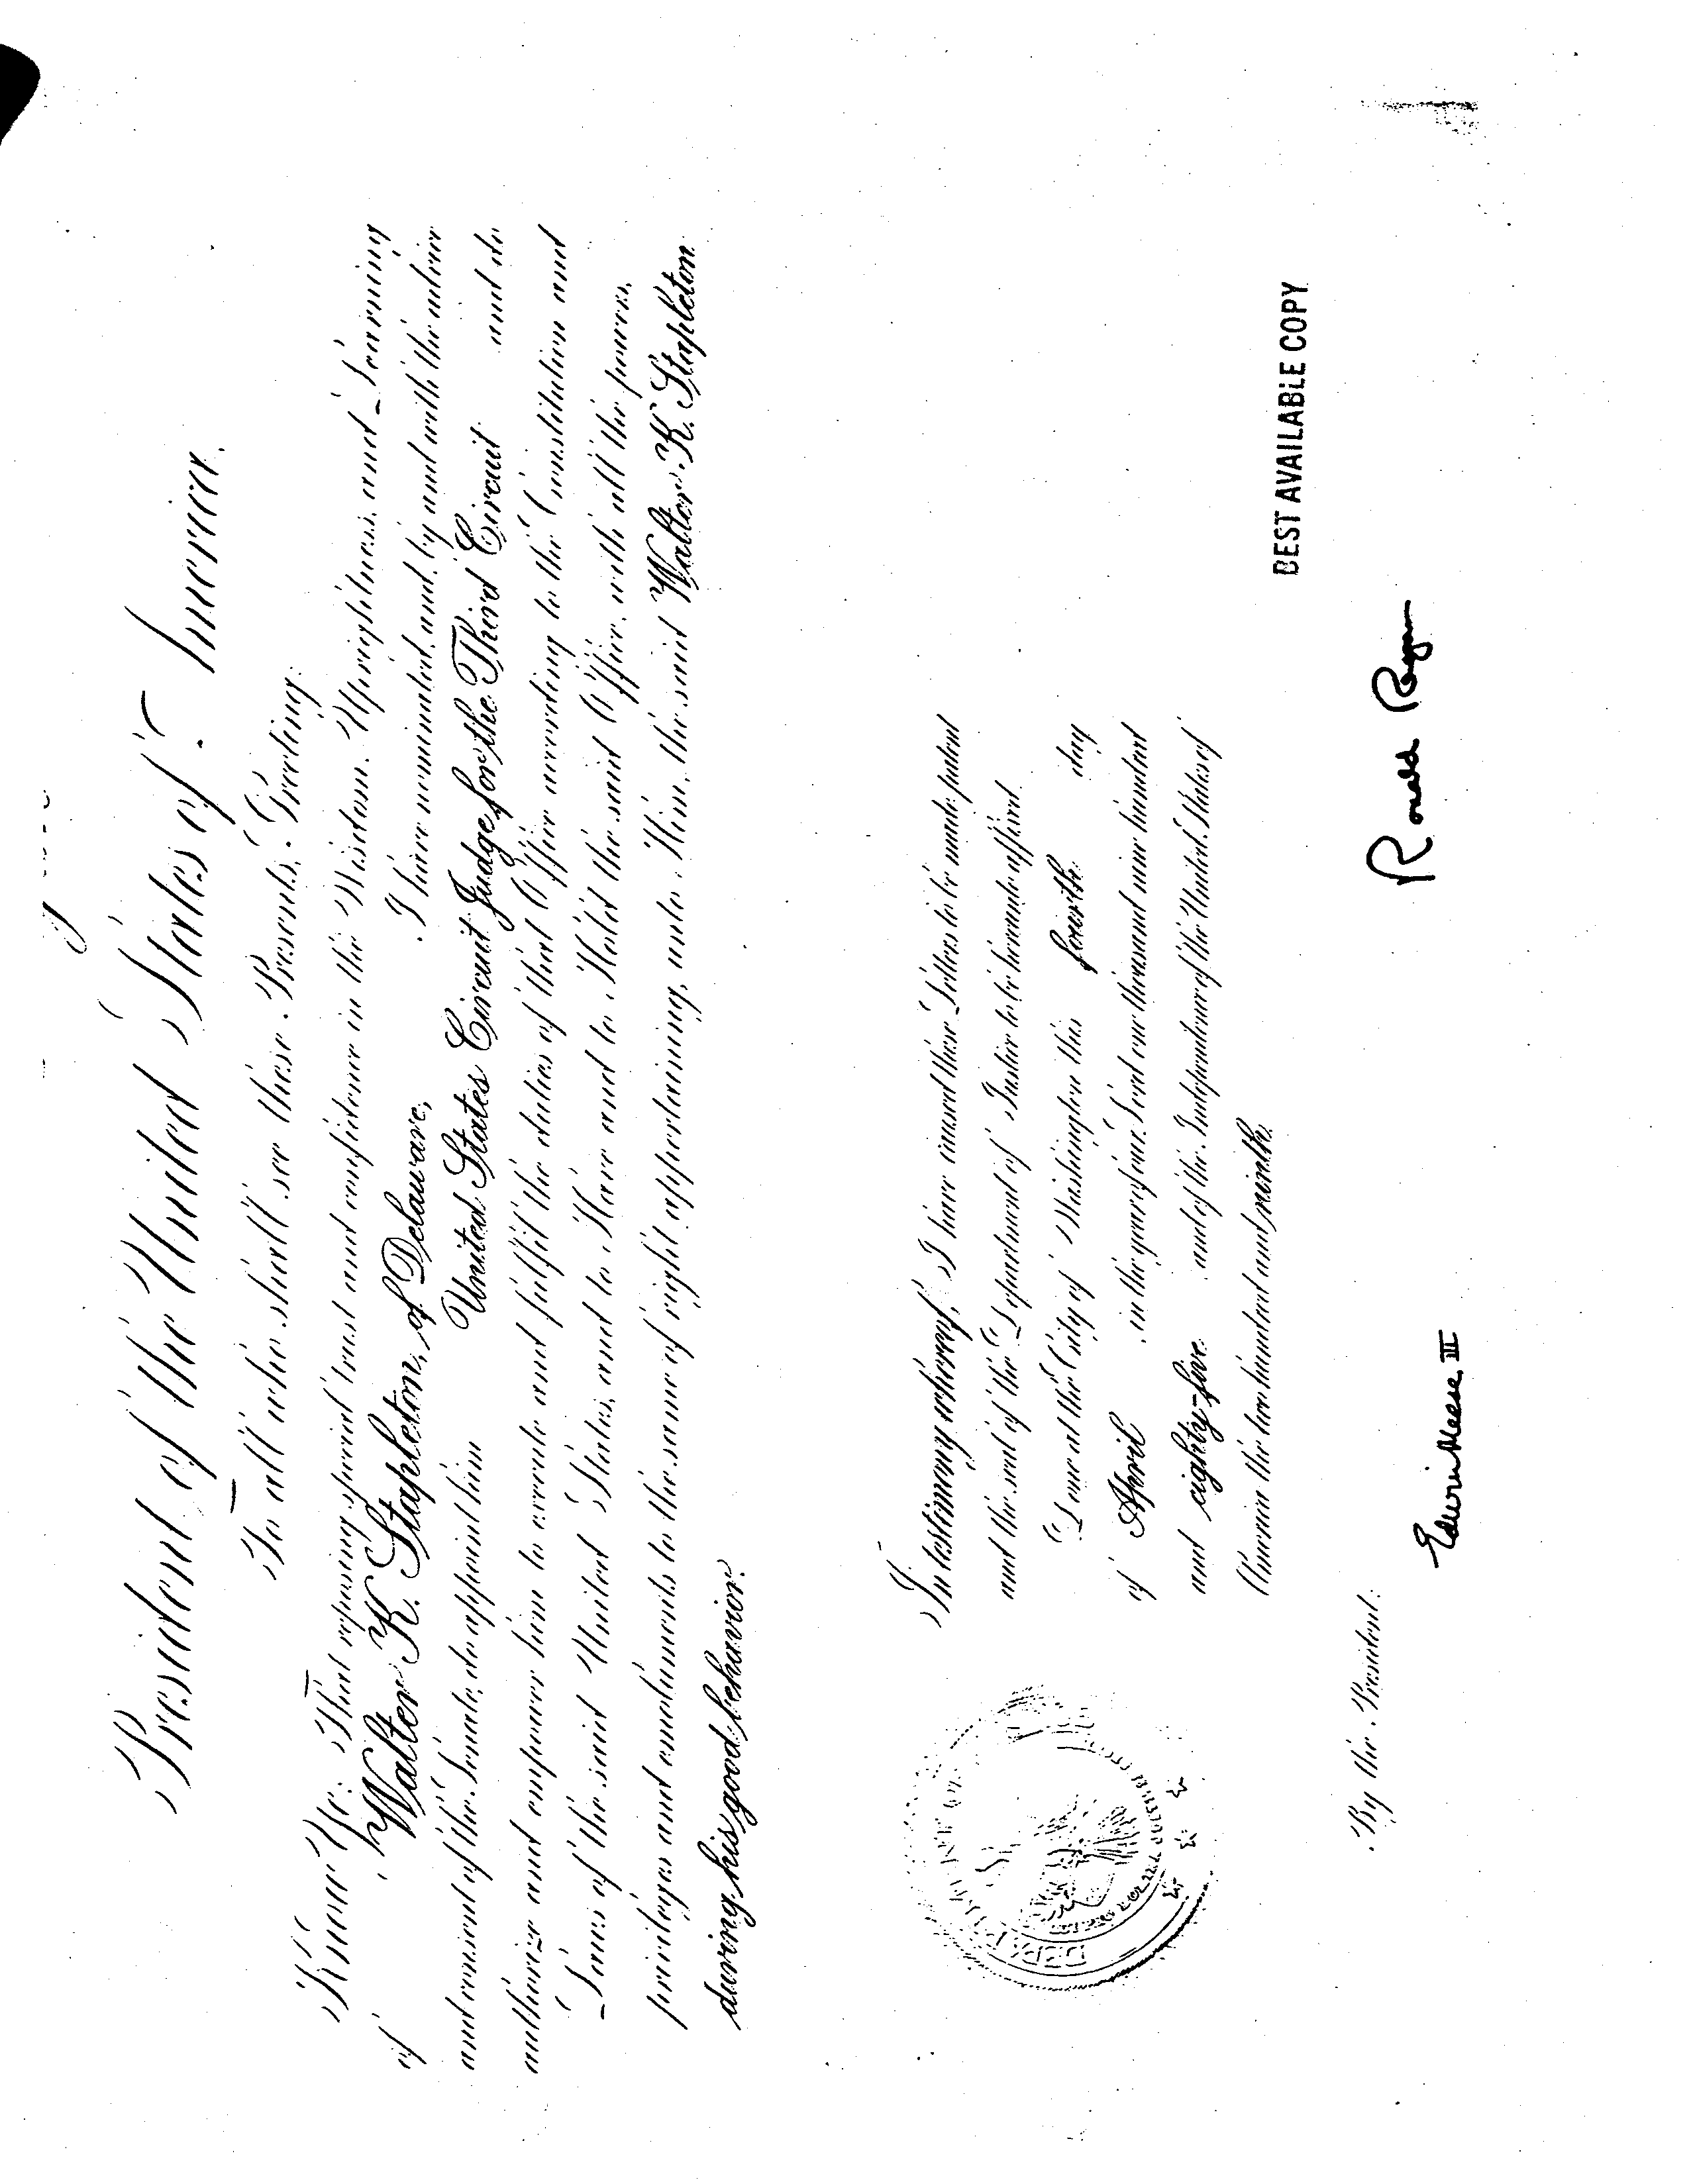 President of the United States of America
To all who shall see these Presents, Greeting:
Know Ye: That reposing special trust and confidence in the Wisdom, Uprightness, and Learning
of Walter K. Stapleton, of Delaware, I have nominated, and, by and with the advice
and consent of the Senate, do appoint him United States Circuit Judge for the Third Circuit and do
authorize and empower him to execute and fulfil the duties of that Office according to the Constitution and
Laws of the said United States, and to Have and to Hold the said Office, with all the powers,
privileges and emoluments to the same of right appertaining, unto Him, the said Walter K. Stapleton
during his good behavior.
In testimony whereof, I have caused these Letters to be made patent
and the seal of the Department of Justice to be hereunto affixed.
Done at the City of Washington this fourth day
of April in the year of our Lord one thousand nine hundred
and eighty-five and of the Independence of the United States of
America the two hundred and ninth.
BEST AVAILABLE COPY
Ronald Reagan
By the President:
Edwin Meese III